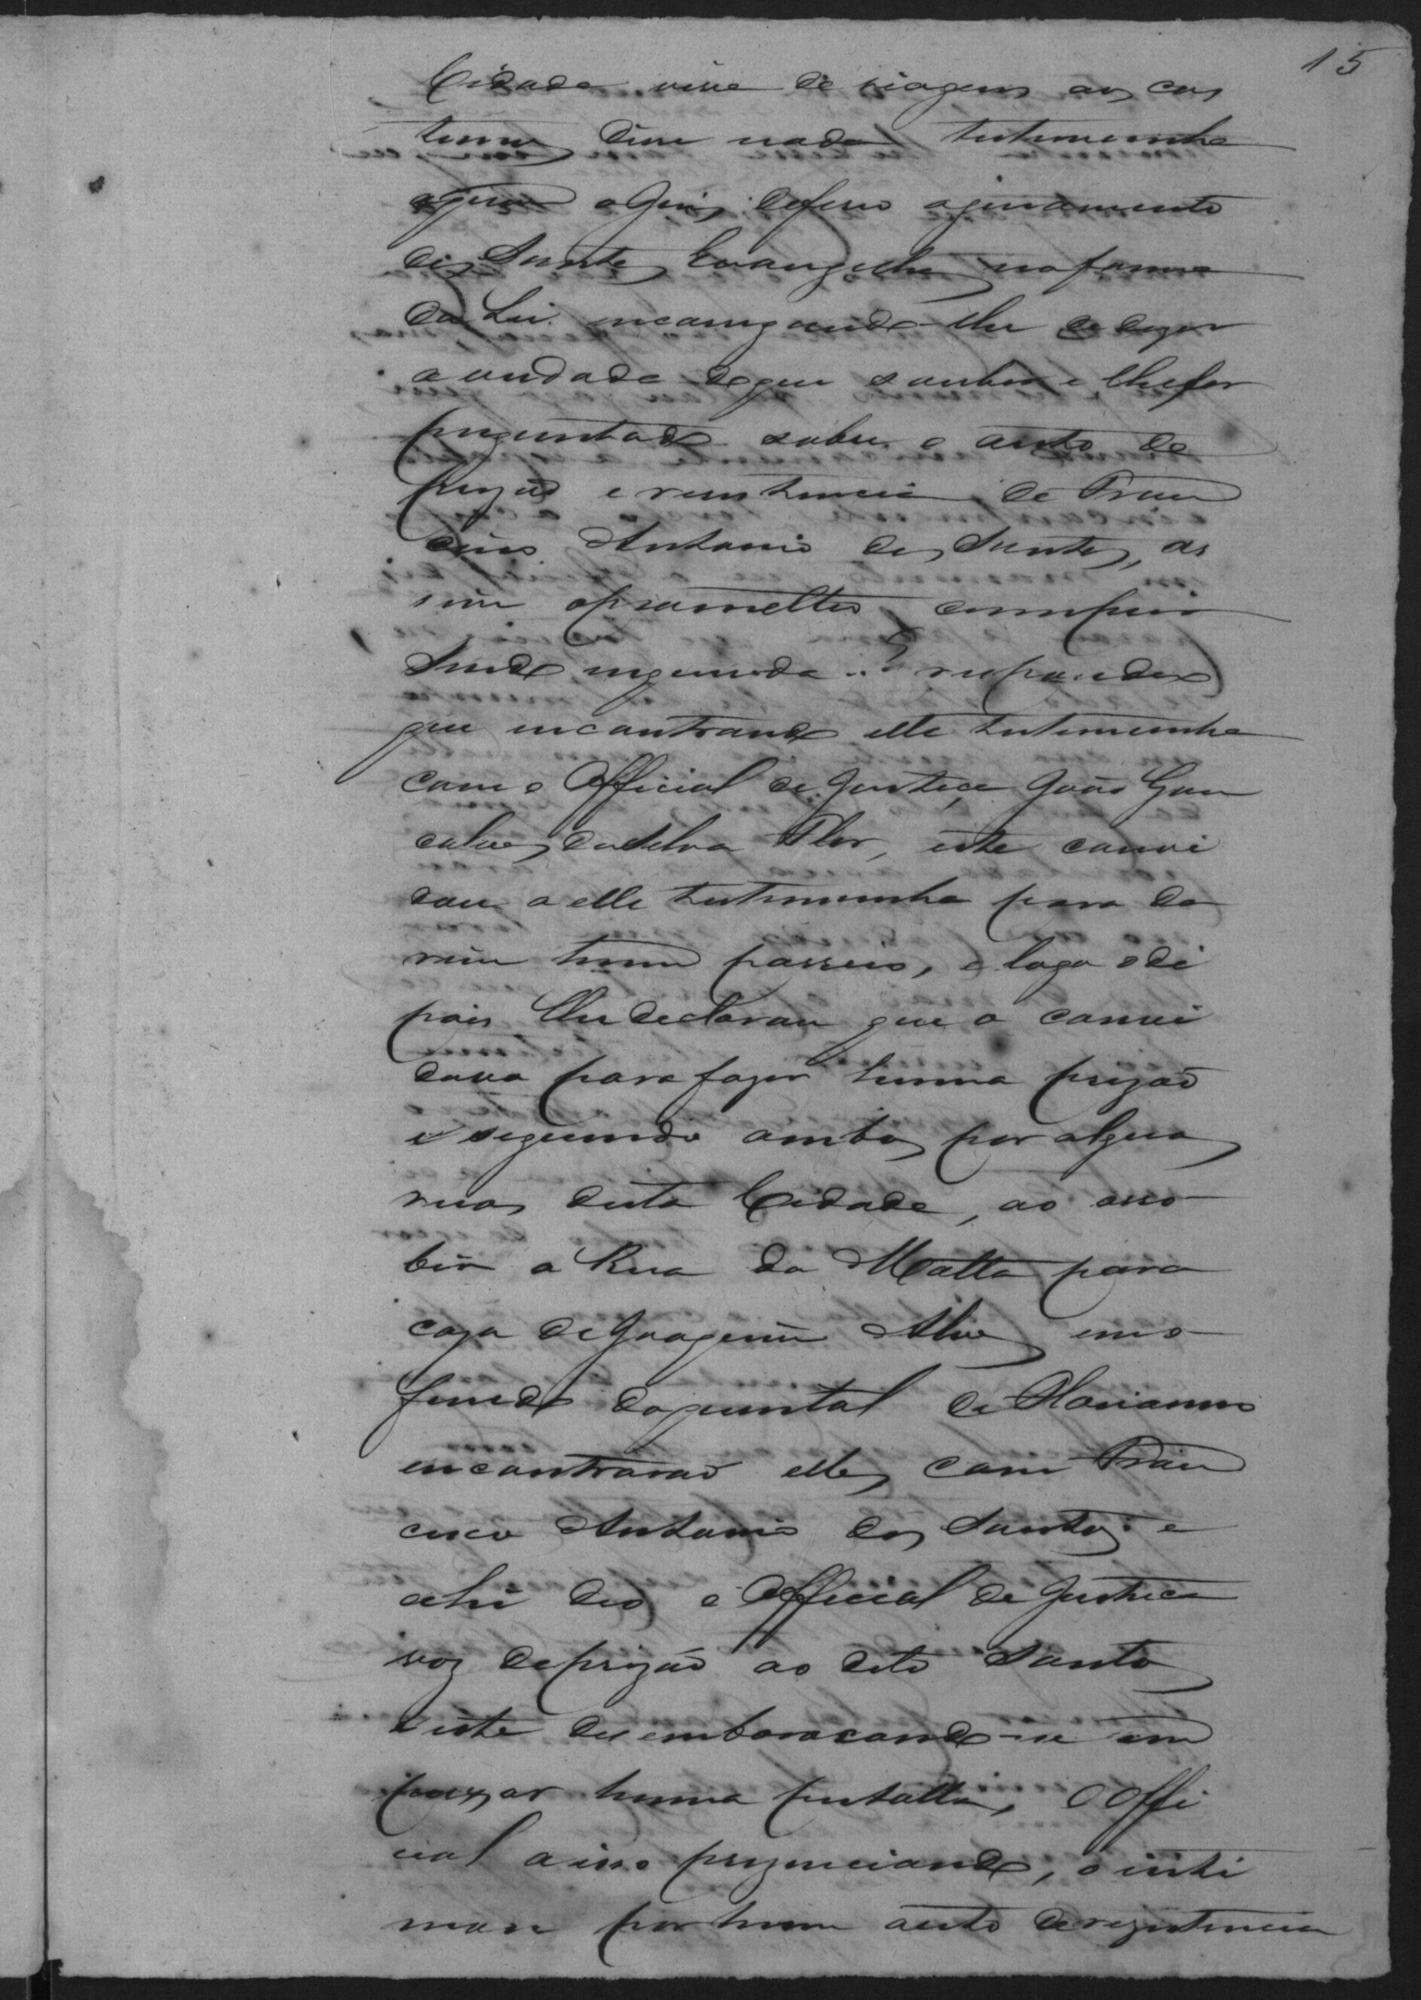 15
Cidade vive de viagens aos cos
tumes disse nada testemunha
aquem o Juis deferio o juramento
dos Santos Evangelhos na forma
da Lei encarregando-lhe de dizer
a verdade do que souber e lhe for
preguntado sobre o auto de
prizaõ e resistencia de Fran
cisco Antonio dos Santos, as
sim o prometteo cumprir
Sendo inquerida .. respondeo
que encontrando elle testemunha
com o Official de Justiça João Gon
calves da Silva Flor, este convi
dou a elle testemunha para da
rem hum passeio, e logo de
pois lhe declarou que o convi
dava para fazer huma prizaõ
e seguindo ambos por algua
ruas desta Cidade, ao su
bir a Rua da Matta para
caza de Joaquim Alves em o
fundo do quintal de Marianno
encontraraõ elles com Fran
cisco Antonio dos Santos e
ahi deo o Official de Justica
voz de prizaõ ao dito Santos
e este desembaracando-se em
puxar huma pistolla, O Offi
cial a isso prezenciando, o inti
mou por hum auto de rezistencia